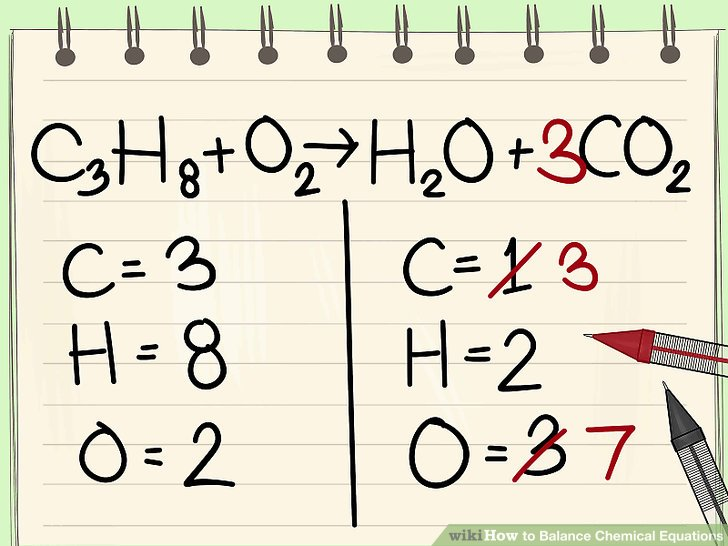 C₃H₈+O₂→H₂O+3CO₂
C=3 C=1 3
H=8 H=2
O=2 O=3 7
wikiHow to Balance Chemical Equations